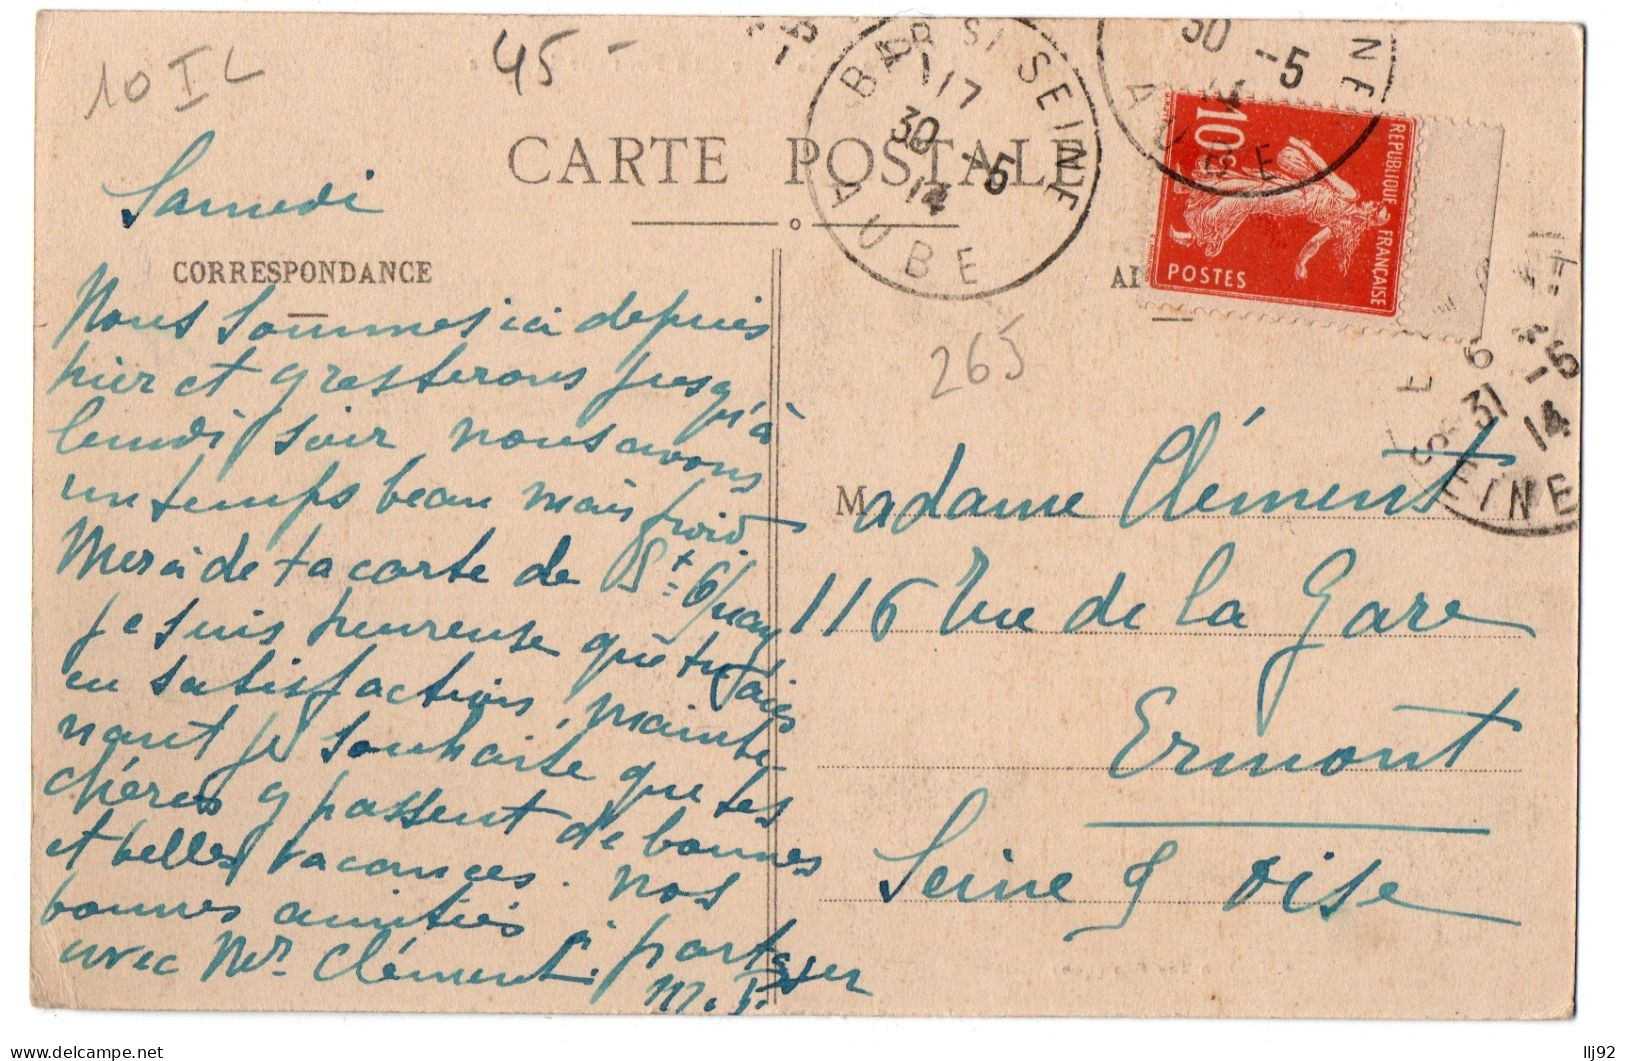 10 I L
45 -
BAR S/ SEINE
17
30 -5
14
AUBE
30 -5
14
AUBE
INE
REPUBLIQUE FRANÇAISE
10c
POSTES
CARTE POSTALE
Samedi
CORRESPONDANCE
265
6
31 -5
14
SEINE
Nous sommes ici depuis
hier et y resterons jusqu'à
lundi soir nous avons
un temps beau mais froid
Merci de ta carte de St Quay
je suis heureuse que tu aies
eu satisfaction, mainte-
nant je souhaite que tes
chéries y passent de bonnes
et belles vacances. Nos
bonnes amitiés à partager
avec Mr. Clément.
M. P.
Madame Clément
116 Rue de la Gare
Ermont
Seine & Oise
llj92